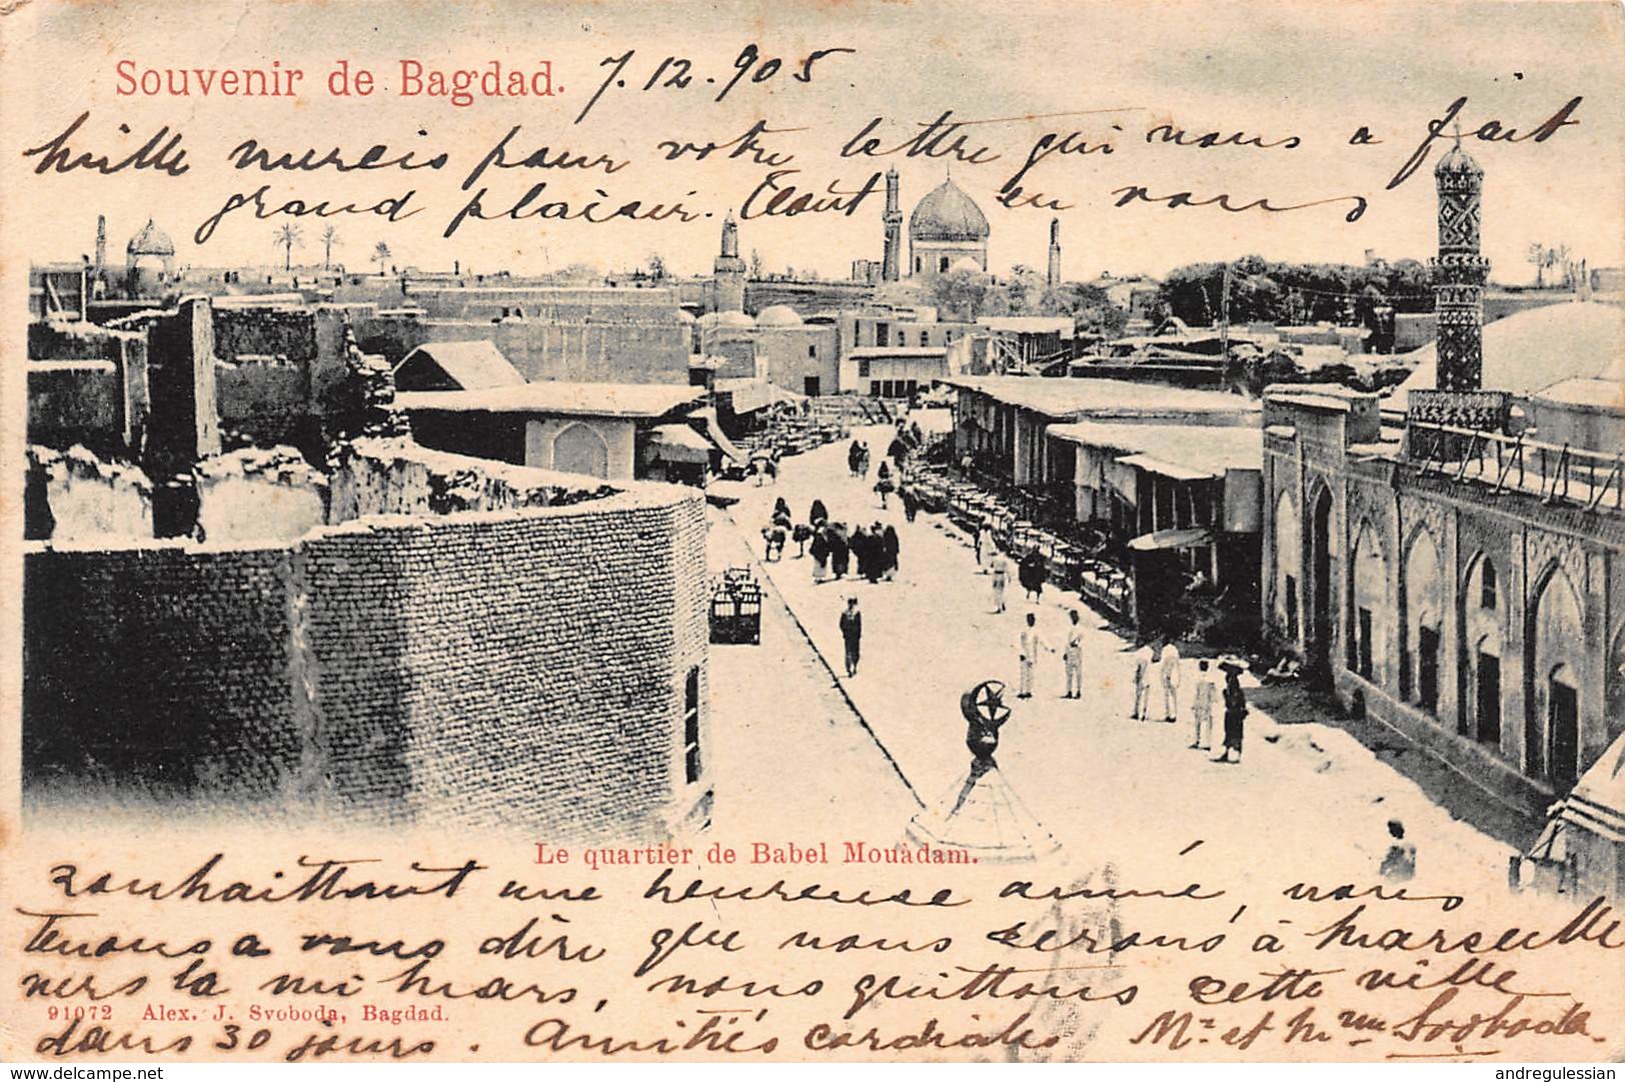 Souvenir de Bagdad. 7.12.905
Mille mercis pour votre lettre qui nous a fait
grand plaisir. Tout en vous
Le quartier de Babel Mouàdam.
souhaittant une heureuse année, nous
tenons a vous dire que nous serons à Marseille
vers la mi Mars, nous quittons cette ville
91072 Alex. J. Svoboda, Bagdad.
dans 30 jours. Amitiés cordiales Mr et Mme Svoboda.
delcampe.net
andregulessian